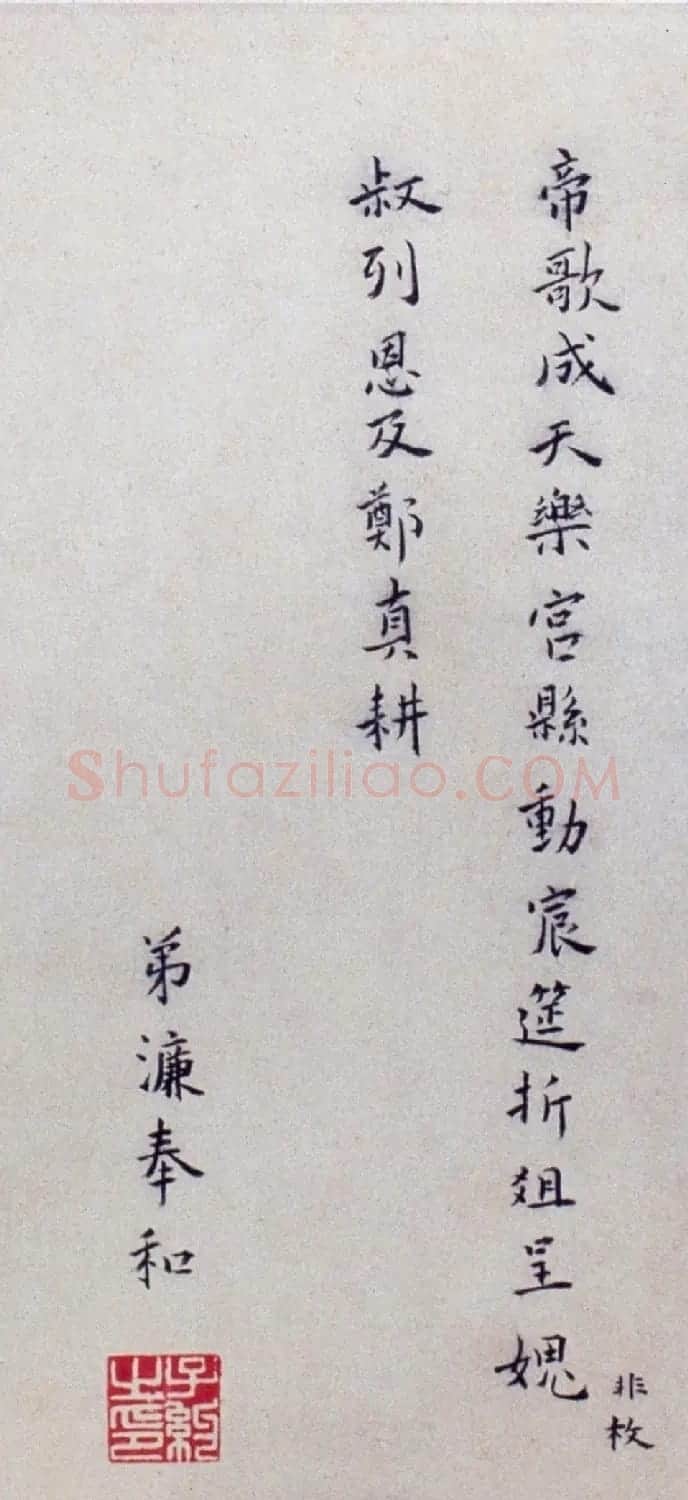 帝歌成天樂宮縣動宸筵折爼呈媿
非枚
叔列恩及鄭真耕
弟濂奉和
子約之印
Shufaziliao.COM